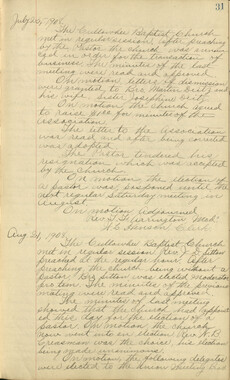 31
July 20, 1908
The Cullowhee Baptist Church
met in regular session, after preaching
by the Pastor the church was announ-
ced in order for the transaction of
business. The minutes of the last
meeting were read and approved.
On motion letters of dismission
were granted, to Bro Martin and
his wife, Sister Josephine
On motion, the Church agreed
to raise for minutes of the
association.
The letter to the Association
was read and after being corrected
was adopted.
The Pastor tendered his
resignation which was accepted
by the Church.
On motion the election of
a pastor was suspended until the
next regular Saturday meeting in
August.
On motion adjourned
Rev Mod.
Clerk
Aug 21, 1908
The Cullowhee Baptist Church
met in regular session, Rev
preached at the regular hour, after
preaching the church being without a
Pastor was elected moderator
pro tem. The minutes of the
meeting were read and approved.
The minutes of last meeting
showed that the Church had appoint
ed this day for the election of a
Pastor. On motion, the church
went into an election Rev
was the choice, his election
being made unanimous.
On motion the following delegates
were elected to the Union Meeting